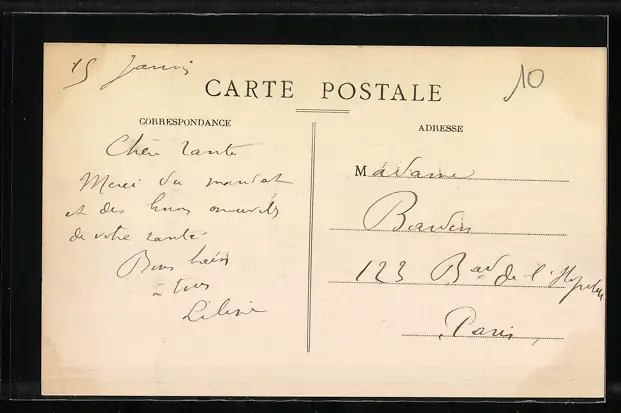 15 Janvi
10
CARTE POSTALE
CORRESPONDANCE
Chère tante
Merci du mandat
et des bonnes nouvelles
de votre santé
Bons baisers
à tous
ADRESSE
Madame
123 Bard de l'Hopital
Paris